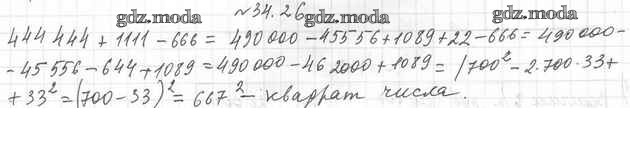 №34.26
gdz.moda gdz.moda gdz.moda
444 444 + 1111 - 666 = 490 000 - 45556 + 1089 + 22 - 666 = 490 000 -
- 45 556 - 644 + 1089 = 490 000 - 46 2000 + 1089 = (700² - 2.700·33 +
+ 33² = (700 - 33)² = 667² - квадрат числа.